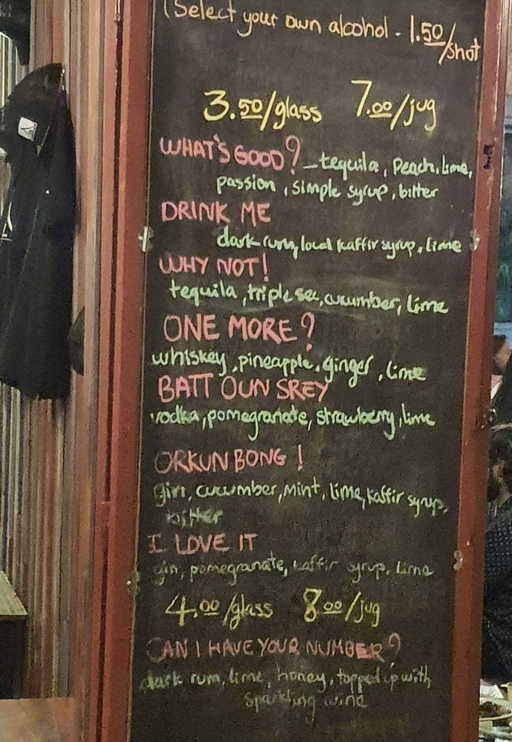 (Select your own alcohol - 1.50/shot
3.50/glass 7.00/jug
WHAT'S GOOD? - tequila, Peach, lime,
passion, simple syrup, bitter
DRINK ME
dark rum, local kaffir syrup, lime
WHY NOT!
tequila, triple sec, cucumber, lime
ONE MORE?
whiskey, pineapple, ginger, lime
BATT OUN SREY
vodka, pomegranate, strawberry, lime
ORKUN BONG!
gin, cucumber, Mint, lime, kaffir syrup,
bitter
I LOVE IT
gin, pomegranate, kaffir syrup, lime
4.00/glass 8.00/jug
CAN I HAVE YOUR NUMBER?
dark rum, lime, honey, topped up with
sparkling wine